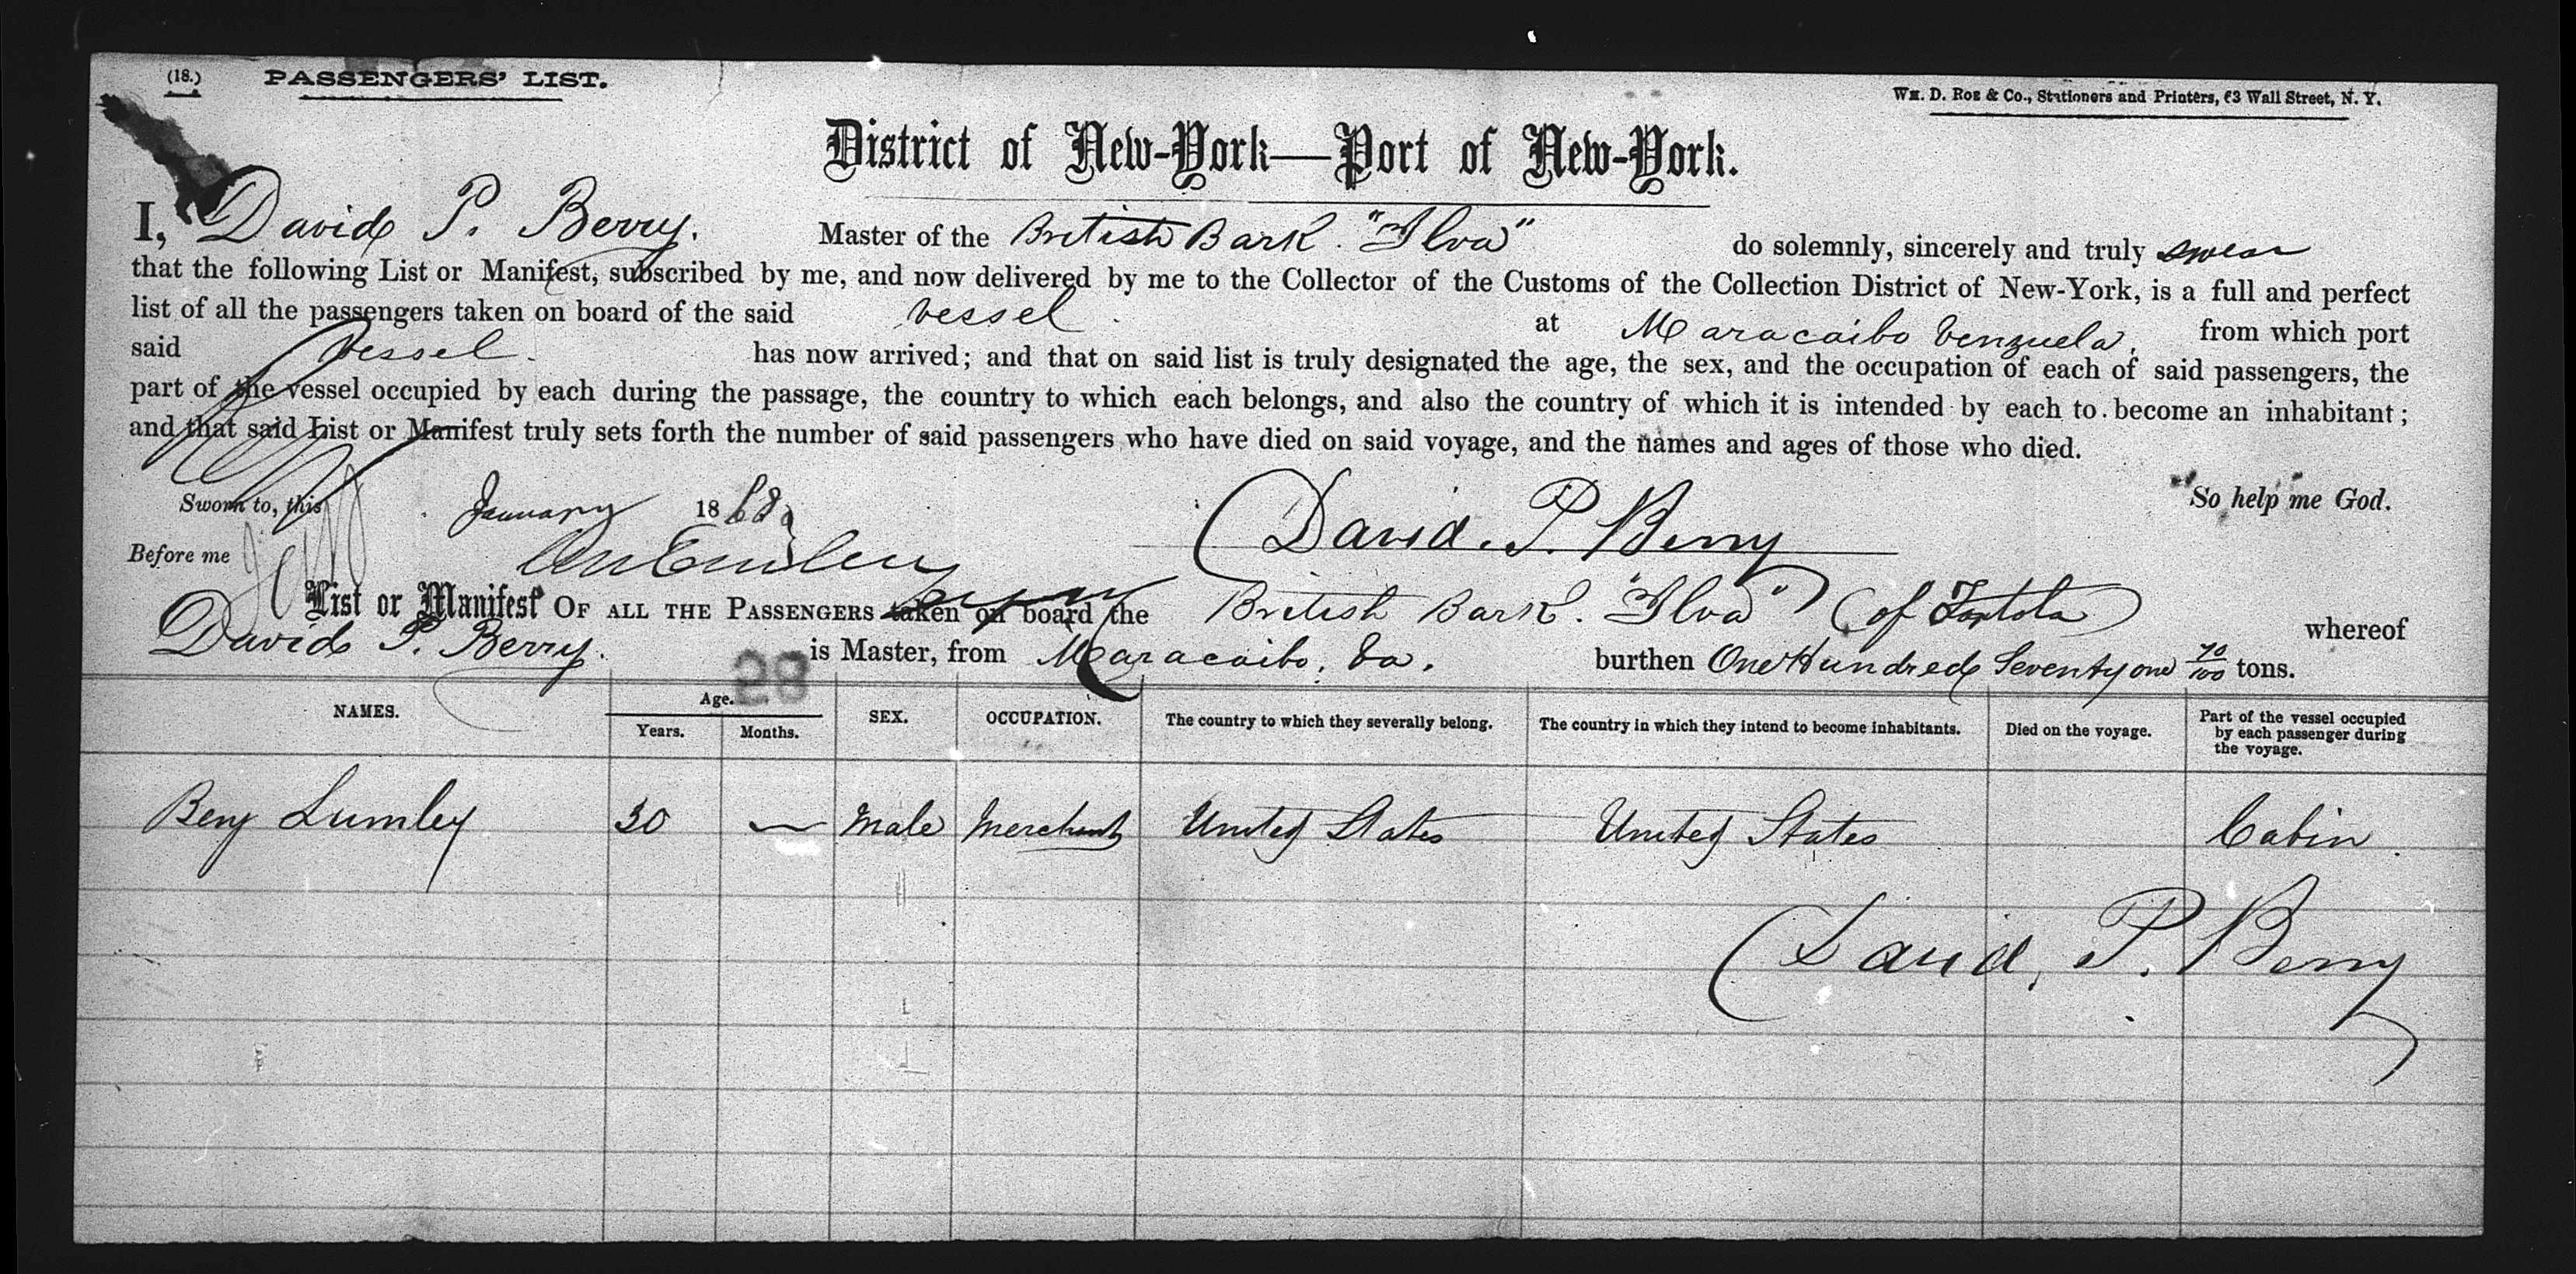 (18.) PASSENGERS' LIST.
Wm. D. Roe & Co., Stationers and Printers, 63 Wall Street, N. Y.
District of New-York—Port of New-York.
I, David P. Berry. Master of the British Bark. "Ilva" do solemnly, sincerely and truly swear
that the following List or Manifest, subscribed by me, and now delivered by me to the Collector of the Customs of the Collection District of New-York, is a full and perfect
list of all the passengers taken on board of the said vessel at Maracaibo Venzuela, from which port
said vessel. has now arrived; and that on said list is truly designated the age, the sex, and the occupation of each of said passengers, the
part of the vessel occupied by each during the passage, the country to which each belongs, and also the country of which it is intended by each to become an inhabitant;
and that said List or Manifest truly sets forth the number of said passengers who have died on said voyage, and the names and ages of those who died.
Sworn to, this January 1868 So help me God.
Before me David. P. Berry
List or Manifest OF ALL THE PASSENGERS taken on board the British Bark. "Ilva" (of Tortola) whereof
David P. Berry. is Master, from Maracaibo, Va. burthen One Hundred Seventy one 70/100 tons.
28
NAMES. Age. Years. Months. SEX. OCCUPATION. The country to which they severally belong. The country in which they intend to become inhabitants. Died on the voyage. Part of the vessel occupied by each passenger during the voyage.
Benj Lumley 30 — Male Merchant United States United States Cabin
David. P. Berry